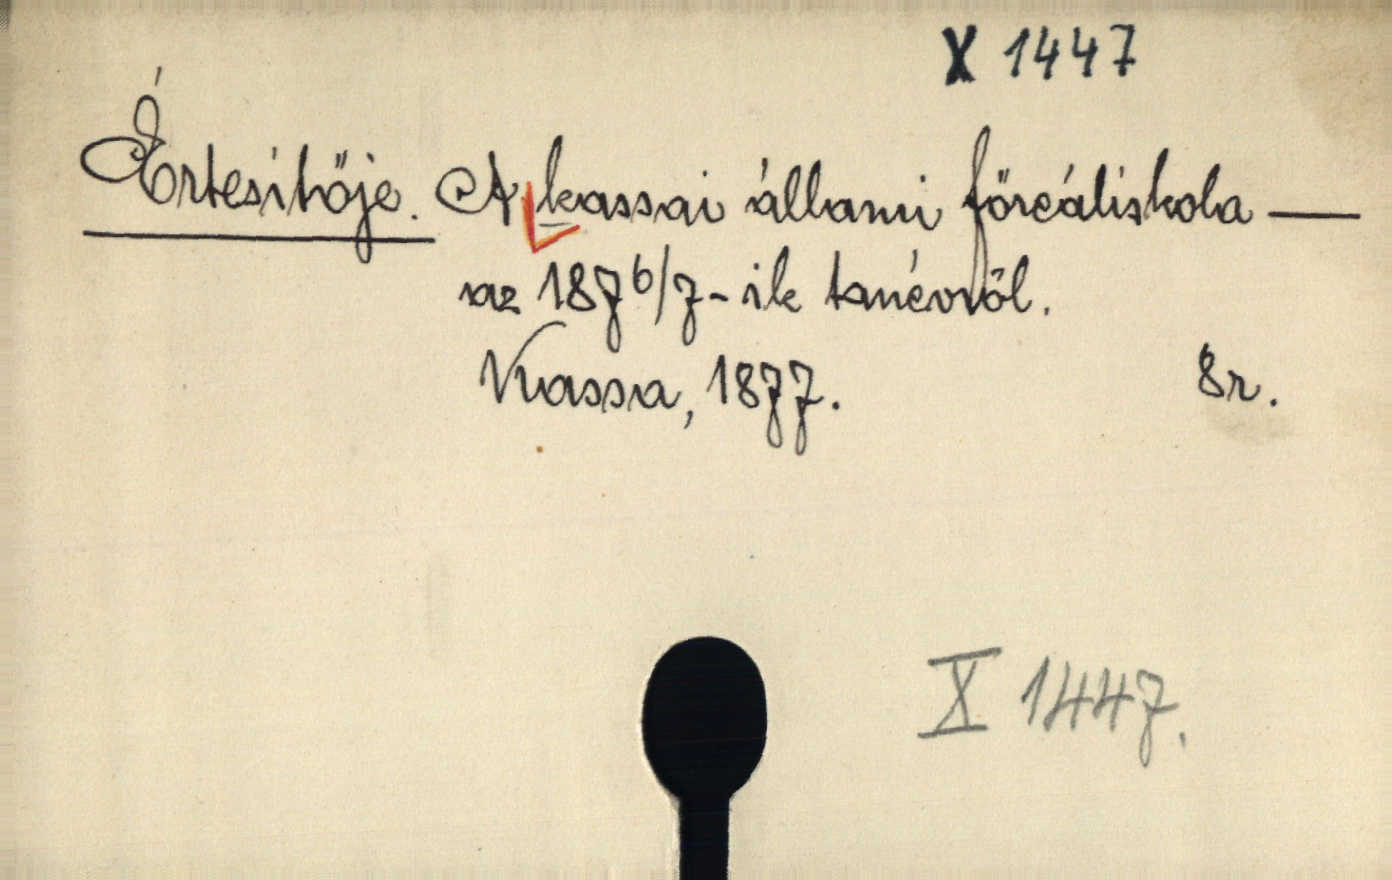 X 1447
Értesitője. A kassai állami főreáliskola —
az 187⁶/7-ik tanévről.
Kassa, 1877. 8r.
X 1447.